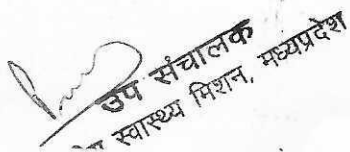 उप संचालक
स्वास्थ्य मिशन, मध्यप्रदेश